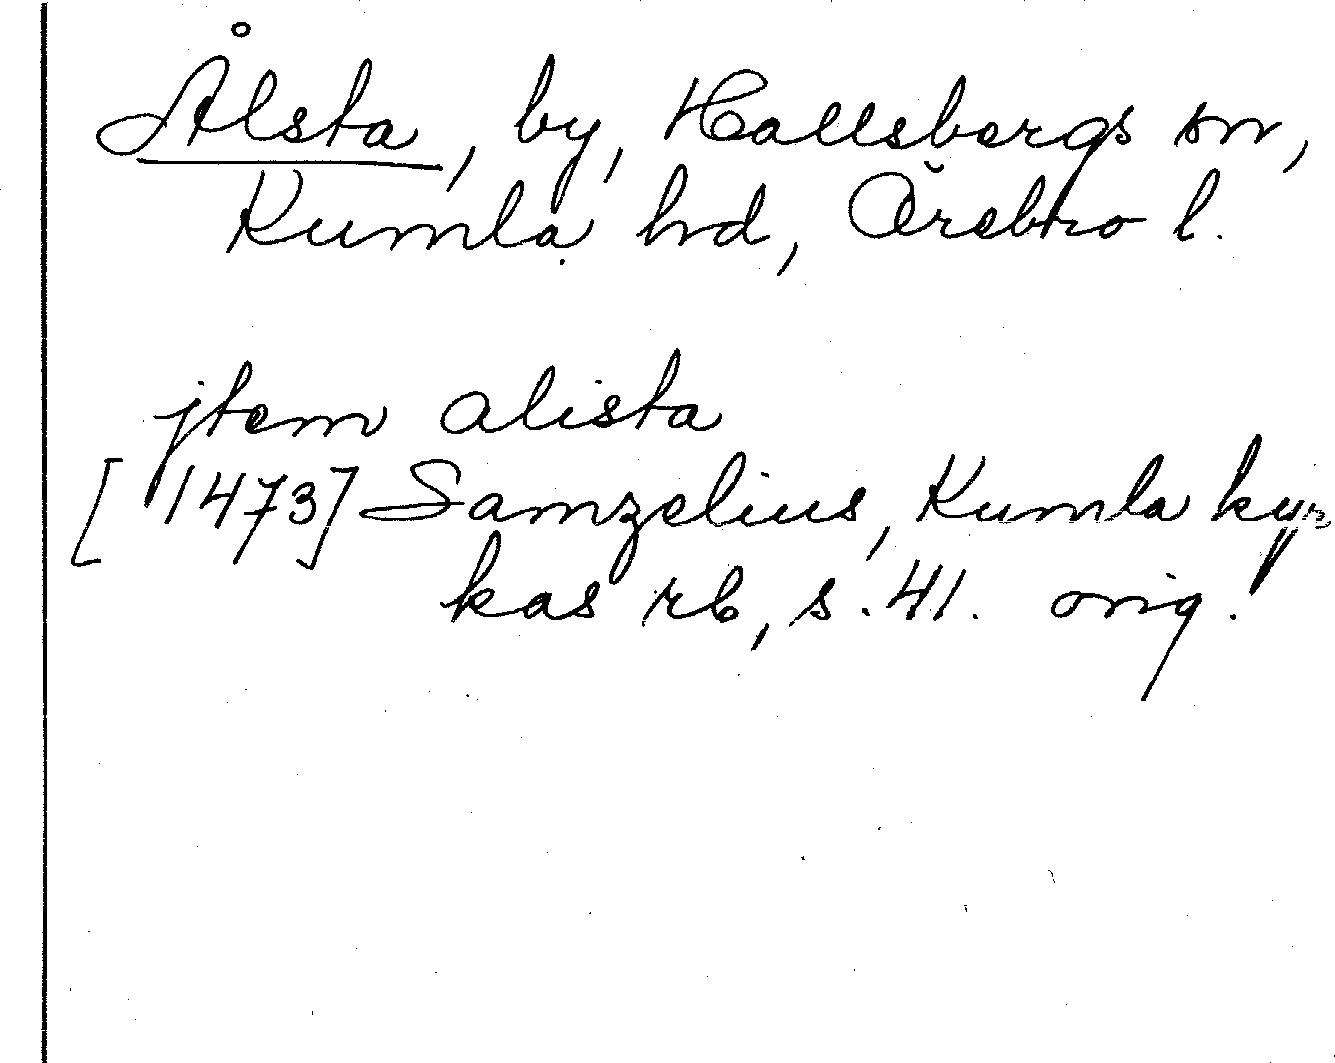 Ålsta, by, Hallsbergs sn,
Kumla hd, Örebro l.
jtem alista
[1473] Samzelius, Kumla kyr
kas rb, s. 41. orig.